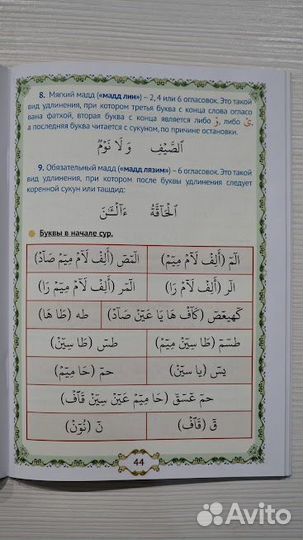 8. Мягкий мадд («мадд лин») – 2, 4 или 6 огласовок. Это такой
вид удлинения, при котором третья буква с конца слова огласо
вана фатхой, вторая буква с конца является либо وْ, либо يْ,
а последняя буква читается с сукуном, по причине остановки.
اَلصَّيْفِ وَ لَا نَوْمٌ
9. Обязательный мадд («мадд лязим») – 6 огласовок. Это такой
вид удлинения, при котором после буквы удлинения следует
коренной сукун или ташдид:
اَلْحَآقَّةُ ءَآلْـَٰٔنَ
Буквы в начале сур.
الٓمٓ (أَلِفْ لَآمْ مِيٓمْ) الٓمٓصٓ (أَلِفْ لَآمْ مِيٓمْ صَآدْ)
الٓر (أَلِفْ لَآمْ رَا) الٓمٓر (أَلِفْ لَآمْ مِيٓمْ رَا)
كٓهيعٓصٓ (كَآفْ هَا يَا عَيْنْ صَآدْ) طه (طَا هَا)
طسٓمٓ (طَا سِيٓنْ مِيٓمْ) طسٓ (طَا سِيٓنْ)
يسٓ (يا سِيٓنْ) حمٓ (حَا مِيٓمْ)
حمٓ عٓسٓقٓ (حَا مِيٓمْ عَيْنْ سِيٓنْ قَآفْ)
قٓ (قَآفْ) نٓ (نُوٓنْ)
44
Avito